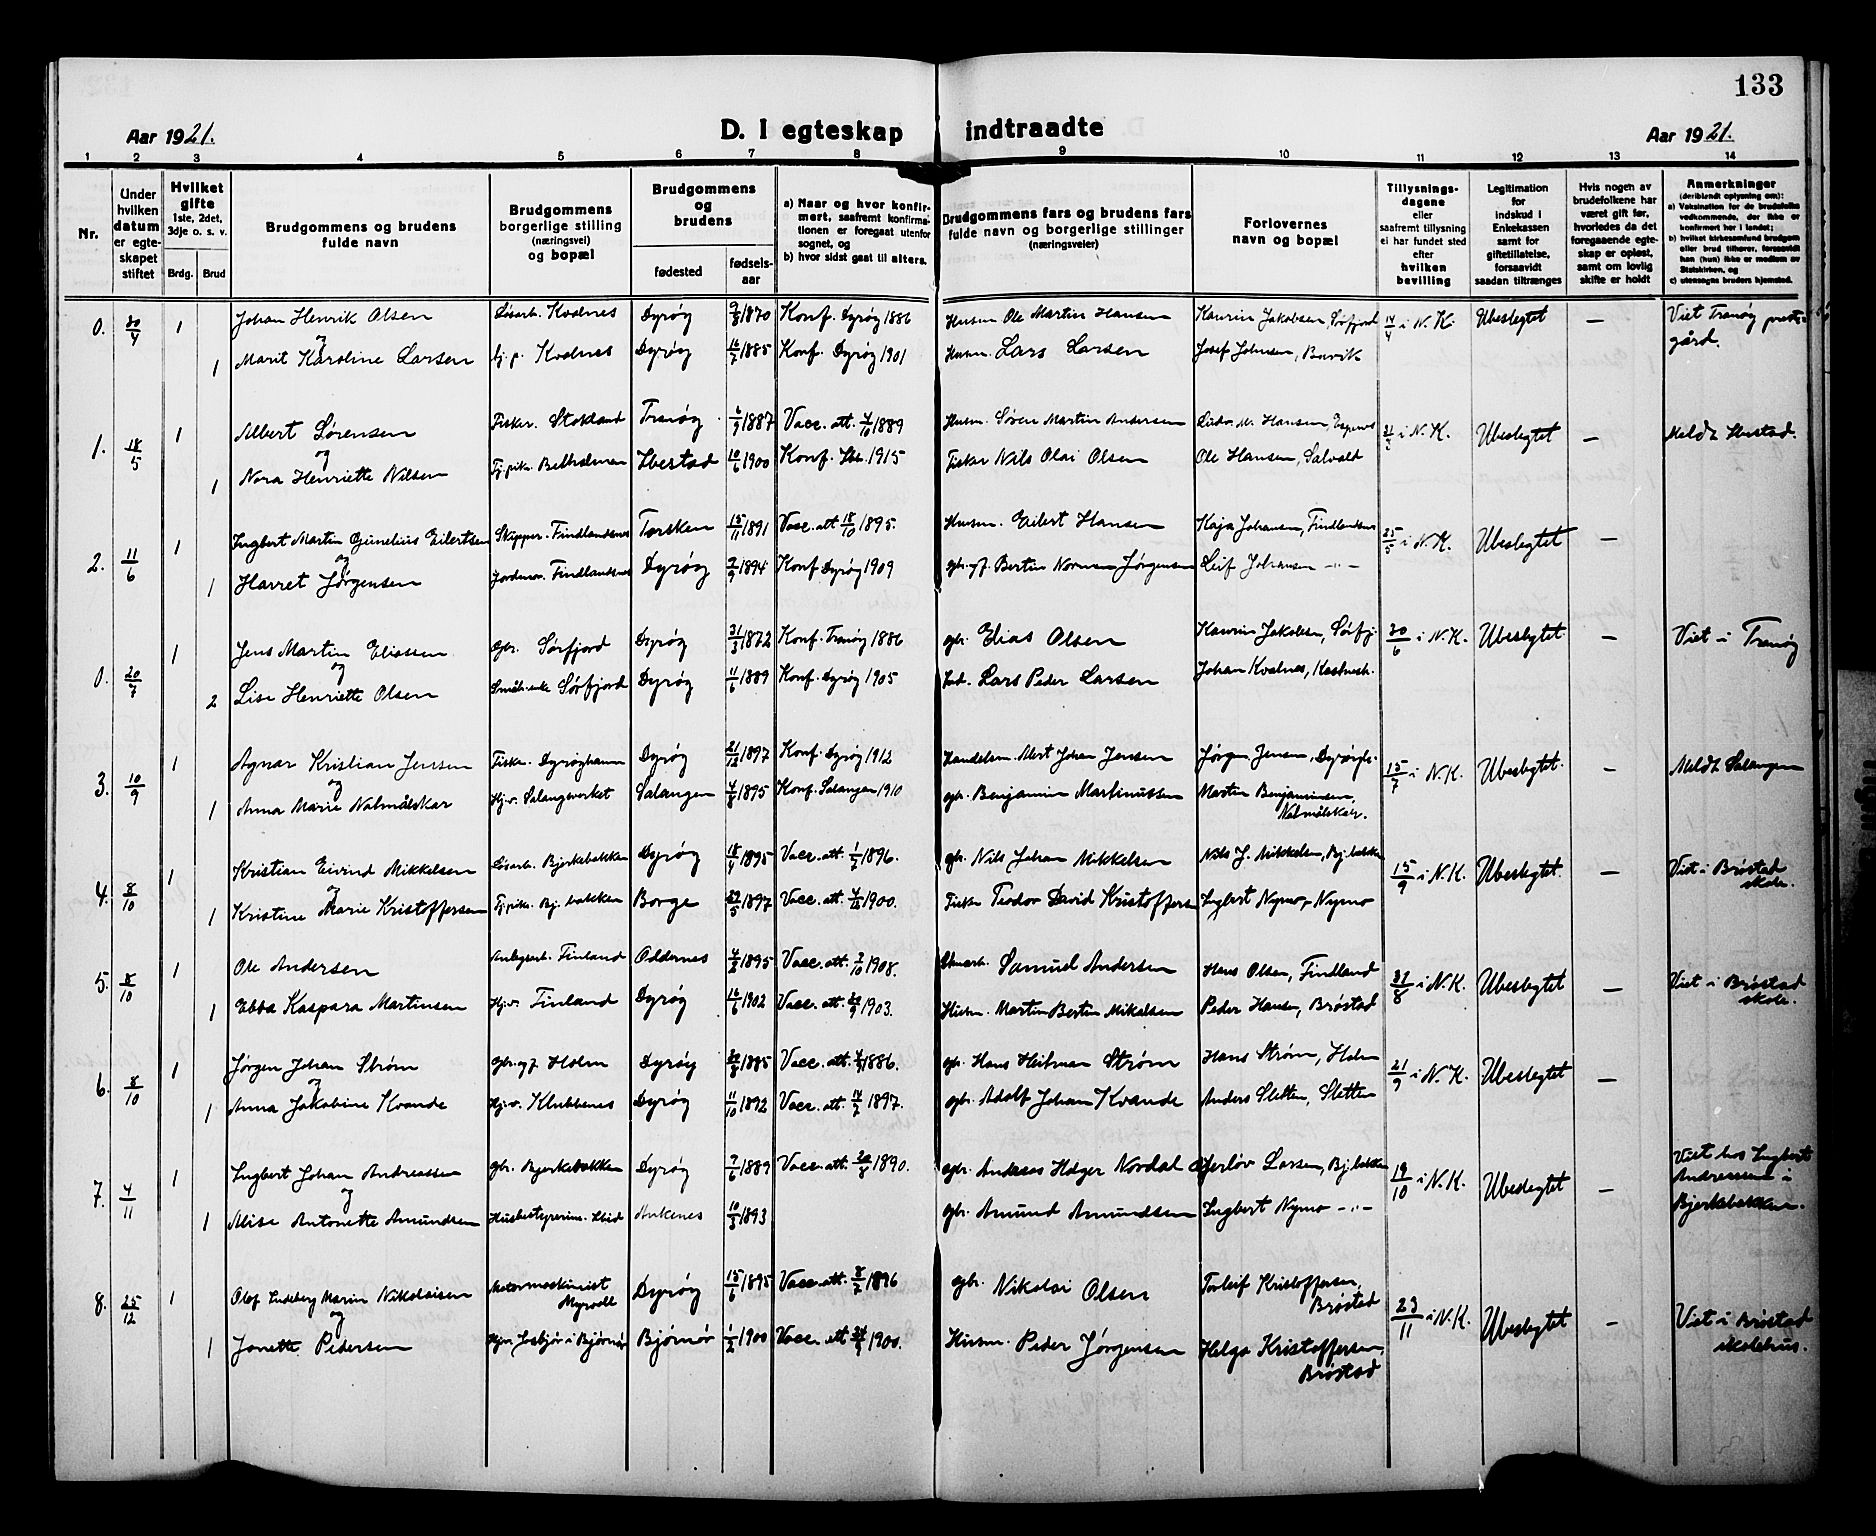 133
Aar 1921.
D. I egteskap indtraadte
Aar 1921.
1 2 3 4 5 6 7 8 9 10 11 12 13 14
Nr.
Under hvilken datum er egteskapet stiftet
Hvilket gifte 1ste, 2det, 3dje o. s. v.
Brdg. Brud
Brudgommens og brudens fulde navn
Brudgommens borgerlige stilling (næringsvei) og bopæl
Brudgommens og brudens
fødested fødselsaar
a) Naar og hvor konfirmert, saafremt konfirmationen er foregaat utenfor sognet, og
b) hvor sidst gaat til alters.
Brudgommens fars og brudens fars fulde navn og borgerlige stillinger (næringsveier)
Forlovernes navn og bopæl
Tillysningsdagene eller saafremt tillysning ei har fundet sted efter hvilken bevilling
Legitimation for indskud i Enkekassen samt for giftetillatelse, forsaavidt saadan tiltrænges
Hvis nogen av brudefolkene har været gift før, hvorledes da det foregaaende egteskap er opløst, samt om lovlig skifte er holdt
Anmerkninger (deriblandt oplysning om):
a) Vaksination for de brudefolks vedkommende, der ikke er konfirmert her i landet;
b) hvilket kirkesamfund brudgom eller brud tilhører, forsaavidt han (hun) ikke er medlem av Statskirken, og
c) utensogns bruders hjemsted.
0. 30/4 1 Johan Henrik Olsen Løsarb. Kvalnes Dyrøy 9/3 1870 Konf. Dyrøy 1886 Husm Ole Martin Hansen Kaurin Jakobsen, Sørfjord 14/4 i N. K. Ubeslegtet — Viet Tranøy prestegård.
og
1 Marit Karoline Larsen Tj. p. Kvalnes Dyrøy 16/7 1885 Konf. Dyrøy 1901 Husm. Lars Larsen Josef Johnsen, Bavik
1. 18/5 1 Albert Sørensen Fisker. Stokland Tranøy 6/9 1887 Vacc. att. 4/10 1889 Husm. Søren Martin Andersen Ludv. M. Hansen, Espenes i N. K. Ubeslegtet — Meldt Ibestad.
og
1 Nora Henriette Nilsen Tj.pike. Ibestad 10/6 1900 Konf. Ibe. 1915 Fisker Nils Olai Olsen Ole Hansen, Salvald
2. 11/6 1 Ingbert Martin Gunelius Eilertsen Skipper. Findlandsnes Torsken 15/11 1891 Vacc. att 18/10 1895. Husm. Eilert Hansen Kaja Johansen, Findlandsnes 25/5 i N. K. Ubeslegtet —
og
1 Harret Jørgensen Jordmor. Findlandsnes Dyrøy 2/9 1894 Konf. Dyrøy 1909 gbr. og f. Bertin Norman Jørgensen Leif Johansen —"—
0. 20/7 1 Jens Martin Eliassen gbr. Sørfjord Dyrøy 31/3 1872 Konf. Tranøy 1886 gbr. Elias Olsen Kaurin Jakobsen, Sørfj. 30/6 i N. K. Ubeslegtet — Viet i Tranøy
og
2 Lise Henriette Olsen Småbr.enke Sørfjord Dyrøy 11/6 1889 Konf. Dyrøy 1905 Lars Peder Larsen Johan Kvalnes, Kastnesh.
3. 10/9 1 Agnar Kristian Jenssen Fisker. Dyrøyhamn Dyrøy 21/12 1897 Konf. Dyrøy 1912 Handelsm. Mert Johan Jenssen Jørgen Jensen, Dyrøy 15/7 i N. K. Ubeslegtet. — Meldt Salangen
og
1 Anna Marie Nalmålskar Hj.v. Salangsverket Salangen 4/8 1895 Konf. Salangen 1910 gbr. Benjamin Martinussen Martin Benjaminsen, Nalmålskar.
4. 8/10 1 Kristian Eivind Mikkelsen Løsarb. Bjerkebakken Dyrøy 18/4 1895 Vacc. att. 1/7 1896. gbr. Nils Johan Mikkelsen Nils J. Mikkelsen, Bj.bakken 15/9 i N. K. Ubeslegtet. — Viet i Brøstad skole.
og
1 Kristine Marie Kristoffersen Tj.pike. Bj. bakken Borge 27/5 1897 Vacc. att. 4/12 1900. Fisker Teodor David Kristoffersen Ingbert Nymo, Nymo
5. 8/10 1 Ole Andersen Anlegsarb. Finland Oddernes 4/2 1895 Vacc. att. 2/10 1908. Samuel Andersen Hans Olsen, Findland 31/8 i N. K. Ubeslegtet — Viet i Brøstad skole.
1 Ebba Kaspara Martinsen Hj.v. Finland Dyrøy 16/6 1902 Vacc. att. 20/9 1903. Husm. Martin Bertin Mikalsen Peder Hansen, Brøstad
6. 8/10 1 Jørgen Johan Strøm gbr. og f. Holm Dyrøy 1885 Vacc. att. 1886. gbr. Hans Heitman Strøm Hans Strøm, Holm 21/9 i N. K. Ubeslegtet —
og
1 Anna Jakobine Kvande Hj.v. Klubbenes Dyrøy 11/10 1892 Vacc. att. 14/7 1897. gbr. Adolf Johan Kvande Anders Sletten, Sletten
7. 4/11 1 Ingbert Johan Andreassen gbr. Bjerkebakken Dyrøy 7/6 1889 Vacc. att. 20/8 1890. gbr. Andreas Holger Nordal Gjerløv Larsen, Bj.bakken 19/10 i N. K. Ubeslegtet — Viet hos Ingbert Andreassen i Bjerkebakken.
og
1 Alise Antonette Amundsen Husbestyrerinne. Ibid Ankenes 10/3 1893 gbr. Amund Amundsen Ingbert Nymo —"—
8. 25/12 1 Olaf Lindeberg Marin Nikolaisen Motormaskinist Myrvoll Dyrøy 15/6 1895 Vacc. att. 8/7 1896 gbr. Nikolai Olsen Torleif Kristoffersen, Brøstad 23/11 i N. K. Ubeslegtet — Viet i Brøstad skolehus.
og
1 Janette Pedersen Hj.v. i Bjørnør Bjørnør 1/2 1900 Vacc. att 1900. Husm. Peder Jørgensen Helga Kristoffersen, Brøstad